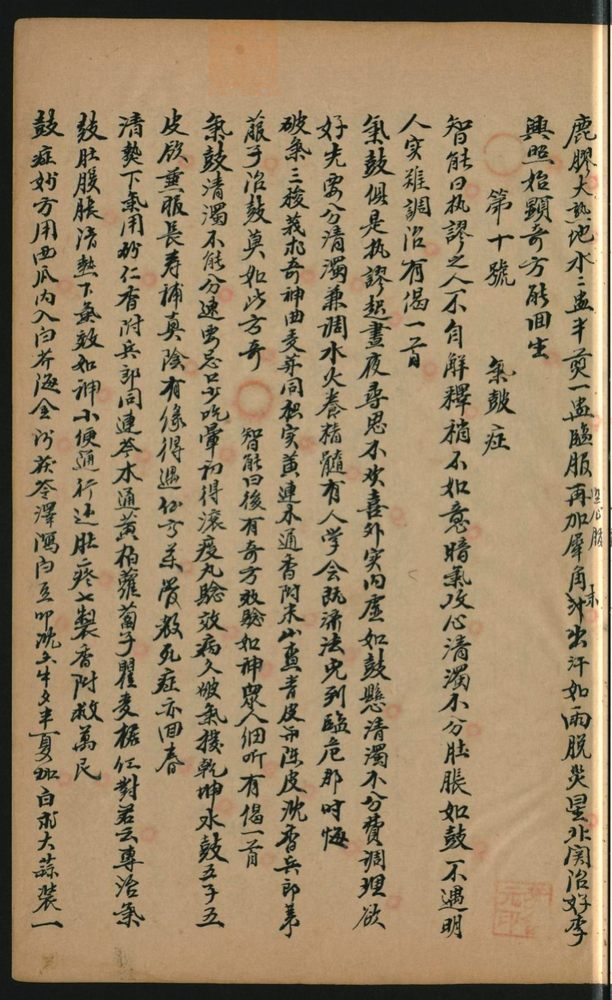 鹿膠大熟地水二盅半煎一盅臨服再加犀角汁出汗如雨脫災星非關治好李
空心服
興照始顯奇方能回生
第十號 氣鼓症
智能曰执謬之人不自解釋稍不如意暗氣攻心清濁不分肚脹如鼓不遇明
人实难調治有偈一首
氣鼓俱是执謬起晝夜尋思不欢喜外实內虛如鼓懸清濁不分費調理欲
好先要分清濁兼調水火養精髓有人学会既济法免到臨危那时悔
破氣三稜莪朮奇神曲麦芽同枳实黄連木通香附末山查青皮而陈皮沈香兵郎萊
菔子治鼓莫如此方奇 智能曰後有奇方效驗如神眾人细听有偈一首
氣鼓清濁不能分速安忌口少吃暈初得滚痰丸驗效病久破氣援乾坤水鼓五子五
皮飲重服長寿補真陰有缘得遇仙方药管教死症亦回春
清熱下氣用砂仁香附兵郎同連芩木通黄柏蘿蔔子瞿麦梔仁對君云專治氣
鼓肚腹脹清熱下氣效如神小便通行还肚疼七製香附救萬民
鼓症妙方用西瓜內入白芥海金沙茯苓澤瀉沈丑牛夕半夏白大蒜裝一